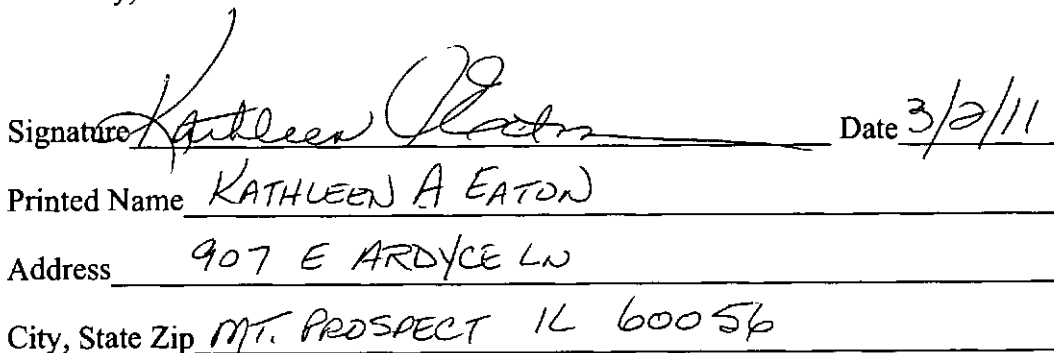 Signature Kathleen A Eaton Date 3/2/11
Printed Name KATHLEEN A EATON
Address 907 E ARDYCE LN
City, State Zip MT. PROSPECT IL 60056